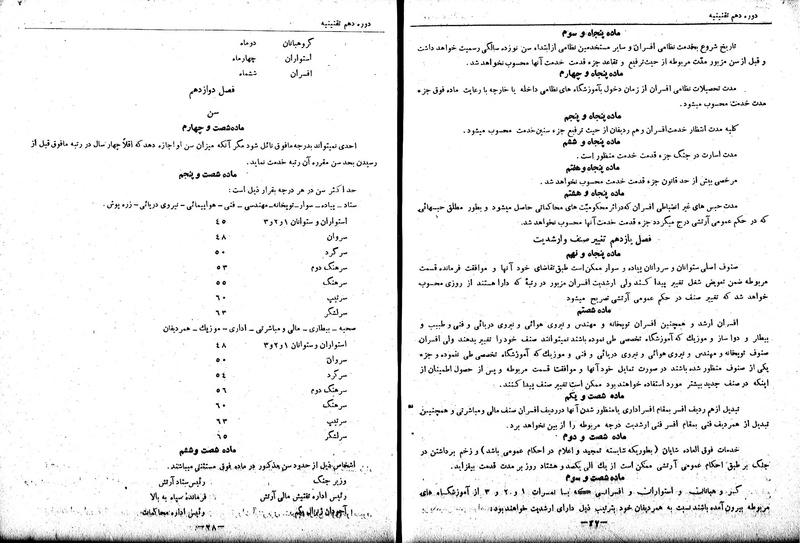 دوره دهم تقنینیه
ماده پنجاه و سوم
تاریخ شروع بخدمت نظامی افسران و سایر مستخدمین نظامی از ابتداء سن نوزده سالگی رسمیت خواهد داشت
و قبل از سن مزبور مدت مربوطه از حیث ترفیع و تقاعد جزء قدمت خدمت آنها محسوب نخواهد شد.
ماده پنجاه و چهارم
مدت تحصیلات نظامی افسران از زمان دخول بآموزشگاه های نظامی داخله یا خارجه با رعایت ماده فوق جزء
مدت خدمت محسوب میشود.
ماده پنجاه و پنجم
کلیه مدت انتظار خدمت افسران و هم ردیفان از حیث ترفیع جزء سنین خدمت محسوب میشود.
ماده پنجاه و ششم
مدت اسارت در جنگ جزء قدمت خدمت منظور است.
ماده پنجاه و هفتم
مرخصی بیش از حد قانون جزء قدمت خدمت محسوب نخواهد شد.
ماده پنجاه و هشتم
مدت حبس های غیر انضباطی افسران که در اثر محکومیت های محاکماتی حاصل میشود و بطور مطلق حبسهائی
که در حکم عمومی ارتشی درج میگردد جزء قدمت خدمت آنها محسوب نخواهد شد.
فصل یازدهم تغییر صنف و ارشدیت
ماده پنجاه و نهم
صنوف اصلی ستوانان و سروانان پیاده و سوار ممکن است طبق تقاضای خود آنها و موافقت فرمانده قسمت
مربوطه ضمن تعویض شغل تغییر پیدا کند ولی ارشدیت افسران مزبور در رتبه که دارا هستند از روزی محسوب
خواهد شد که تغییر صنف در حکم عمومی ارتشی تصریح میشود
ماده شصتم
افسران ارشد و همچنین افسران توپخانه و مهندس و نیروی هوائی و نیروی دریائی و فنی و طبیب و
بیطار و دواساز و موزیک که آموزشگاه تخصصی طی نموده باشند نمیتوانند صنف خود را تغییر بدهند ولی افسران
صنوف توپخانه و مهندس و نیروی هوائی و نیروی دریائی و فنی و موزیک که آموزشگاه تخصصی طی ننموده و جزء
یکی از صنوف منظور شده باشند در صورت تمایل خود آنها و موافقت قسمت مربوطه و پس از حصول اطمینان از
اینکه در صنف جدید بیشتر مورد استفاده خواهند بود ممکن است تغییر صنف پیدا کنند.
ماده شصت و یکم
تبدیل از هم ردیف افسر بمقام افسر اداری یا منظور شدن آنها در ردیف افسران صنف مالی و مباشرتی و همچنین
تبدیل از همردیف فنی بمقام افسر فنی ارشدیت درجه مربوطه را از بین نخواهد برد.
ماده شصت و دوم
خدمات فوق العاده شایان (بطوریکه شایسته تمجید و اعلام در احکام عمومی باشد) و زخم برداشتن در
جنگ بر طبق احکام عمومی ارتشی ممکن است از یك الی یکصد و هشتاد روز بر مدت قدمت بیفزاید.
ماده شصت و سوم
گروهبانان و استواران و افسرانی که با نمرات ۱ و ۲ و ۳ از آموزشگاه های
مربوطه بیرون آمده باشند نسبت به همردیفان خود بترتیب ذیل دارای ارشدیت خواهند بود:
دوره دهم تقنینیه
گروهبانان دو ماه
استواران چهار ماه
افسران ششماه
فصل دوازدهم
سن
ماده شصت و چهارم
احدی نمیتواند بدرجه مافوق نائل شود مگر آنکه میزان سن او اجازه دهد که اقلاً چهار سال در رتبه مافوق قبل از
رسیدن بحد سن مقرره آن رتبه خدمت نماید.
ماده شصت و پنجم
حد اکثر سن در هر درجه بقرار ذیل است:
ستاد ـ پیاده ـ سوار ـ توپخانه ـ مهندسی ـ فنی ـ هواپیمائی ـ نیروی دریائی ـ زره پوش.
استواران و ستوانان ۱ و ۲ و ۳ ۴۵
سروان ۴۸
سرگرد ۵۰
سرهنگ دوم ۵۳
سرهنگ ۵۵
سرتیپ ۶۰
سرلشگر ۶۳
صحیه ـ بیطاری ـ مالی و مباشرتی ـ اداری ـ موزیك ـ همردیفان
استواران و ستوانان ۱ و ۲ و ۳ ۴۸
سروان ۵۰
سرگرد ۵۴
سرهنگ دوم ۵۶
سرهنگ ۶۰
سرتیپ ۶۳
سرلشگر ۶۵
ماده شصت و ششم
اشخاص ذیل از حدود سن مذکور در ماده فوق مستثنی میباشند.
وزیر جنگ رئیس ستاد ارتش
رئیس اداره تفتیش مالی ارتش فرمانده سپاه به بالا
آجودان ژنرال یکم رئیس اداره محاکمات